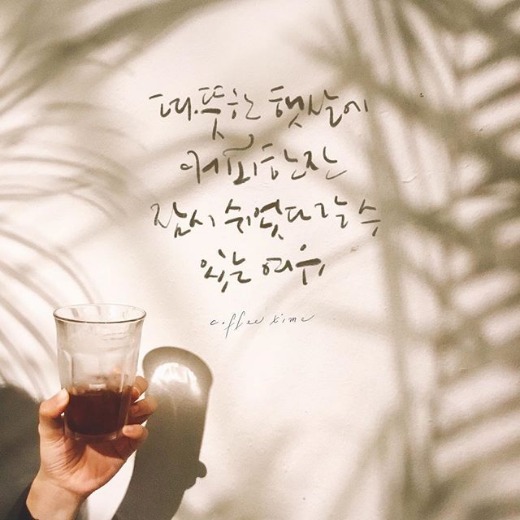 따.뜻한 햇살에
커피한잔
잠시 쉬었다 갈 수
있는 여유,
coffee time